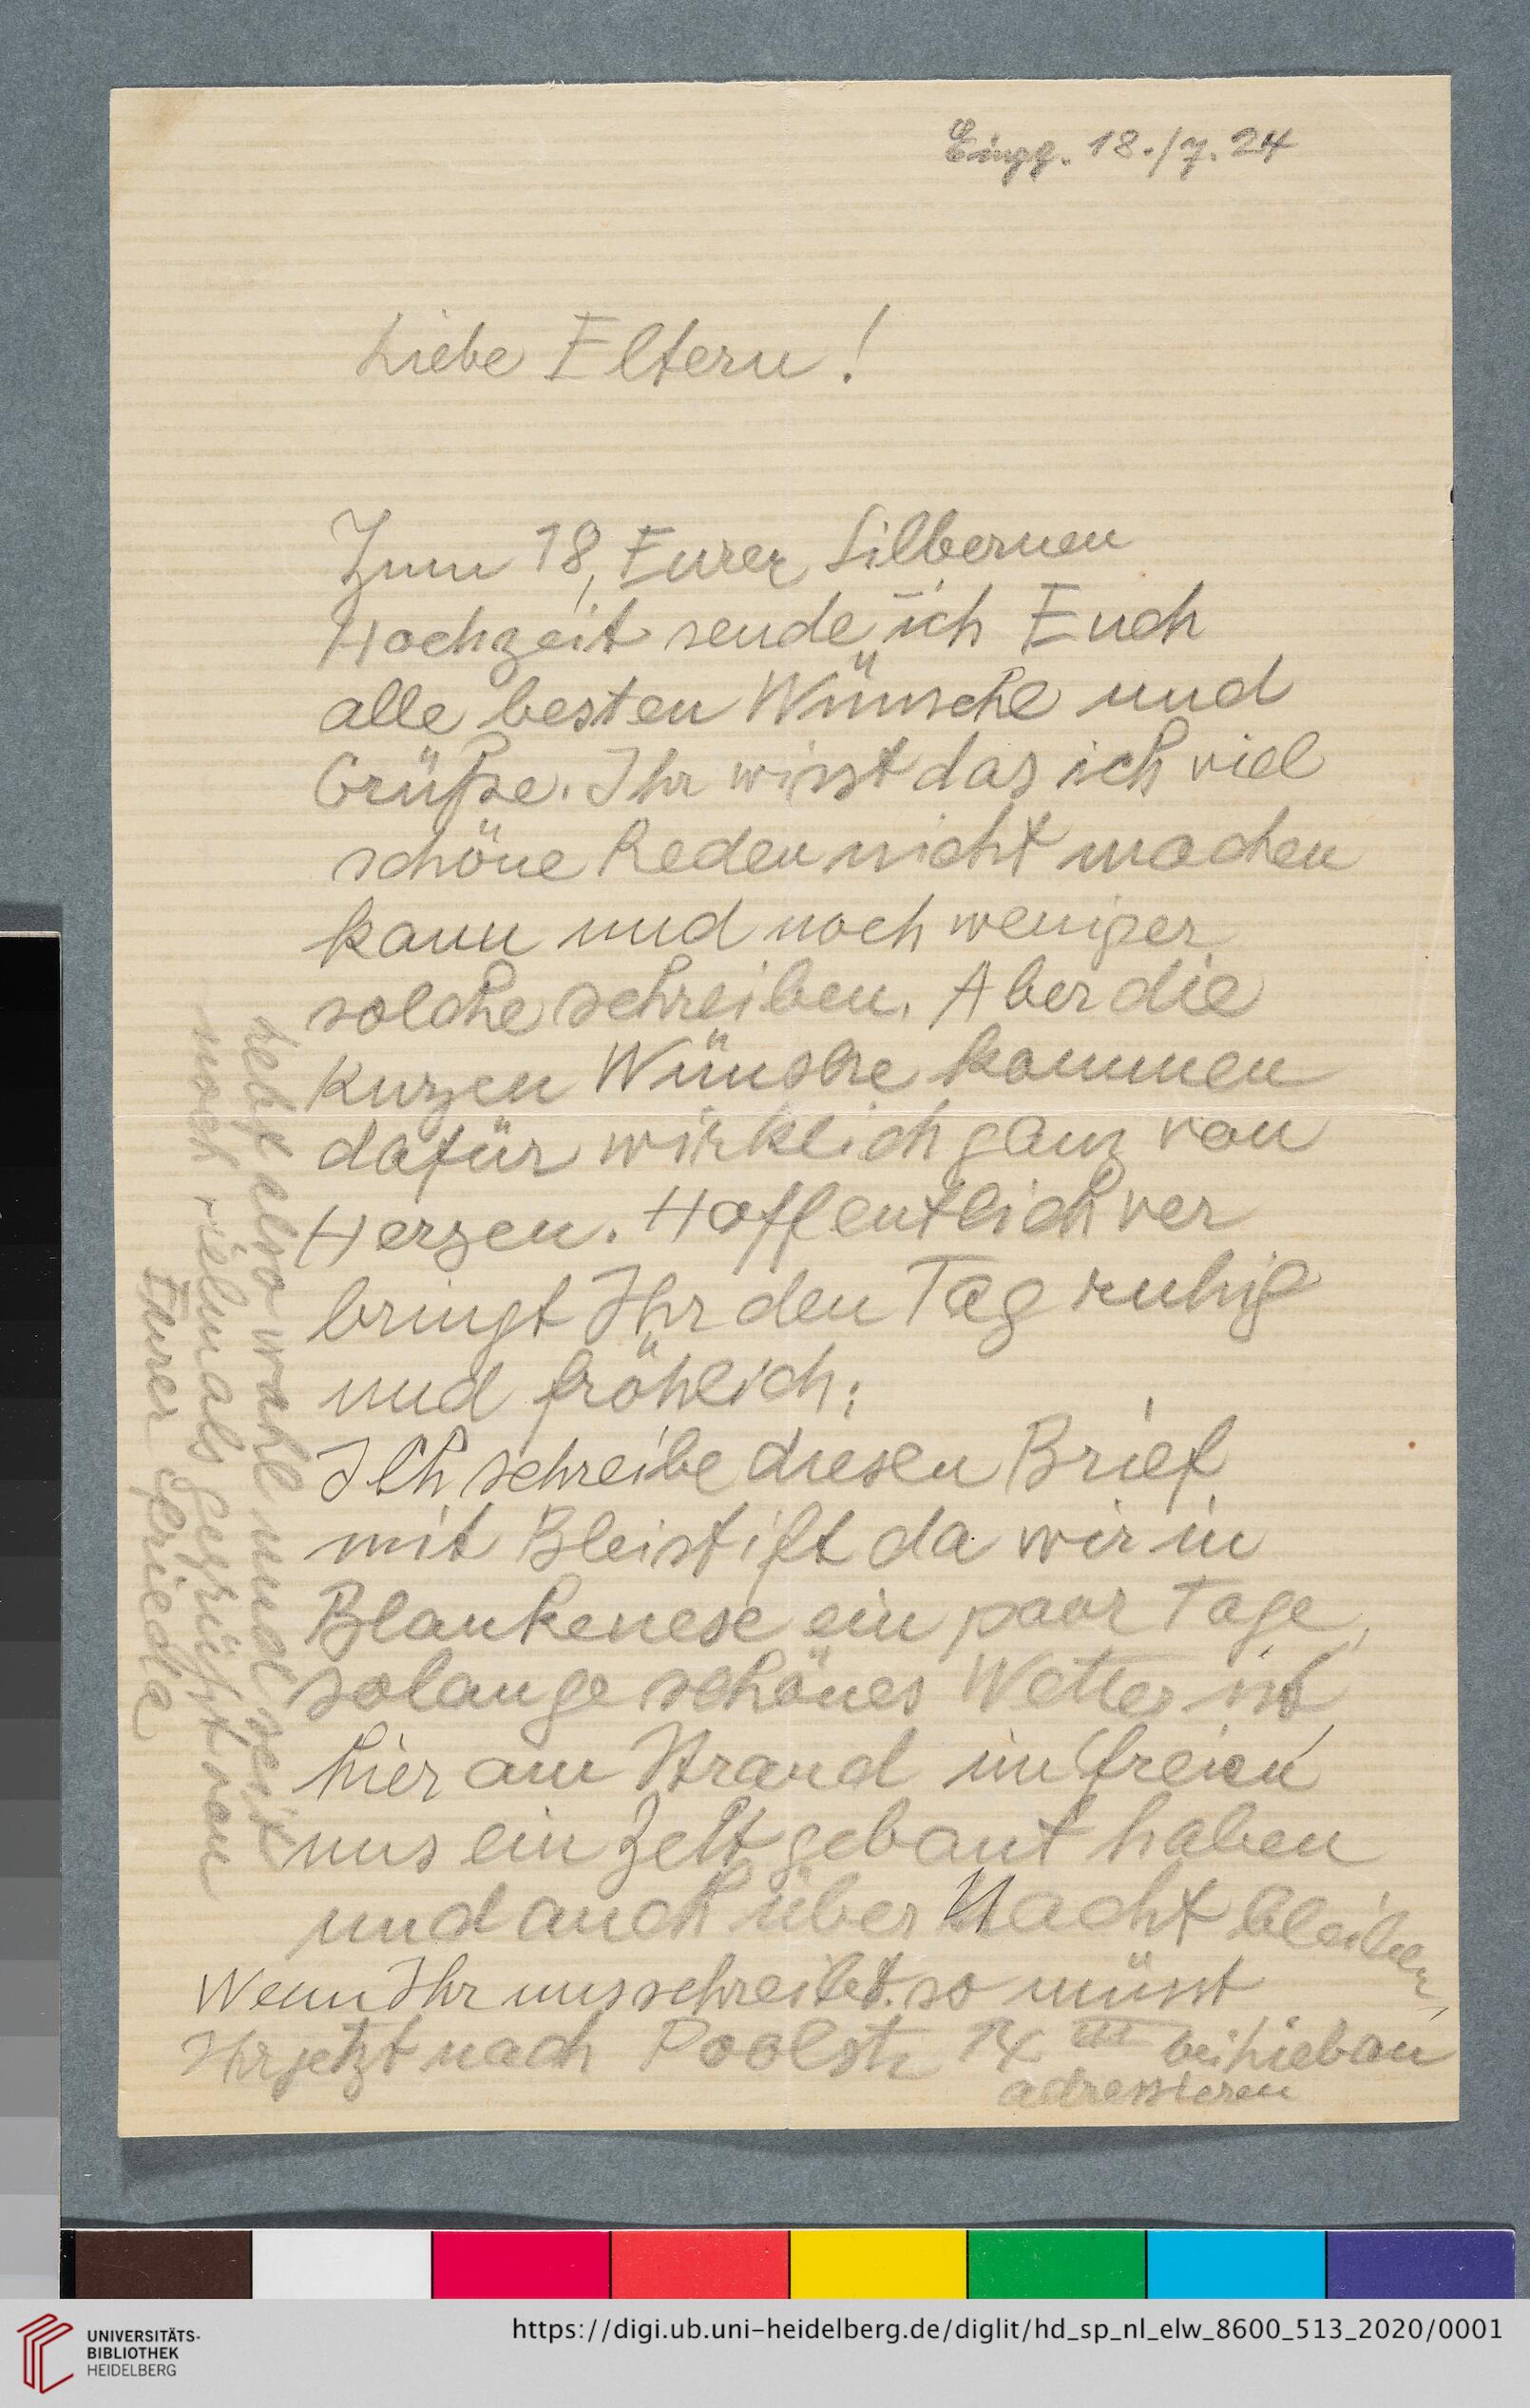 Eingg. 18./7. 24
Liebe Eltern!
Zum 18, Eurer Silbernen
Hochzeit sende ich Euch
alle besten Wünsche und
Grüße. Ihr wisst das ich viel
schöne Reden nicht machen
kann und noch weniger
solche schreiben. Aber die
kurzen Wünsche kommen
dafür wirklich ganz von
Herzen. Hoffentlich ver
bringt Ihr den Tag ruhig
und fröhlich.
Ich schreibe diesen Brief
mit Bleistift da wir in
Blankenese ein paar Tage,
solange schönes Wetter ist
hier am Strand im freien
uns ein Zelt gebaut haben
und auch über Nacht bleiben,
Wenn Ihr uns schreibt. so müsst
Ihr jetzt nach Poolstr 14 III bei Liebau
adressieren
Lebt also wohl und seit
noch vielmals gegrüßt von
Eurer Frieda
UNIVERSITÄTS-
BIBLIOTHEK
HEIDELBERG
https://digi.ub.uni-heidelberg.de/diglit/hd_sp_nl_elw_8600_513_2020/0001